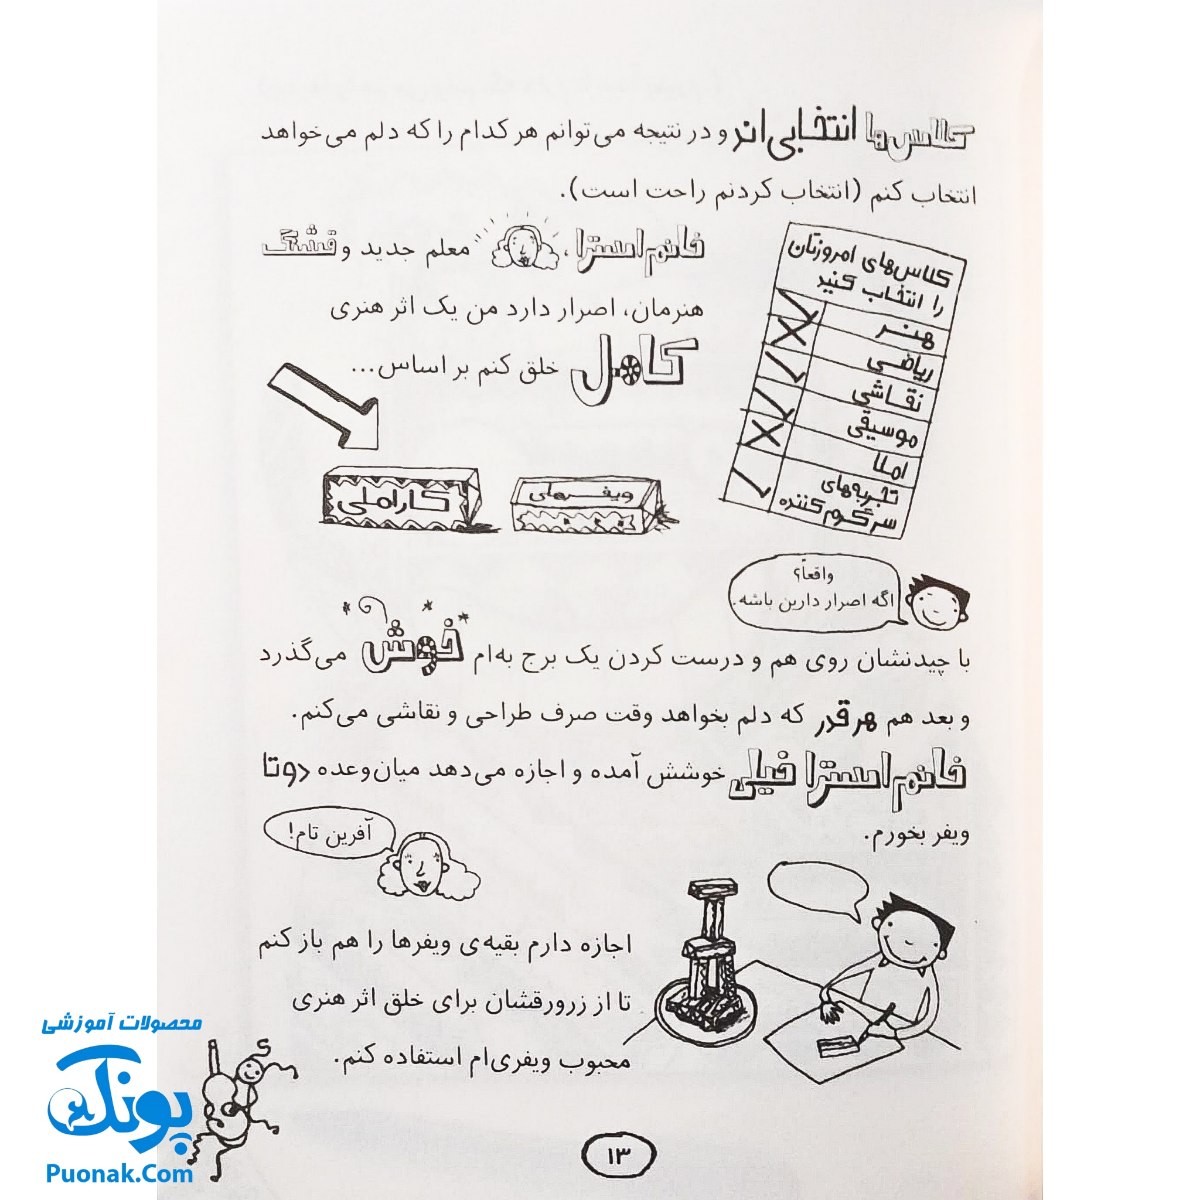 کلاس‌ها انتخابی‌اند و در نتیجه می‌توانم هر کدام را که دلم می‌خواهد
انتخاب کنم (انتخاب کردنم راحت است).
کلاس‌های امروزتان
را انتخاب کنید
هنر
ریاضی
نقاشی
موسیقی
املا
تجربه‌های
سرگرم‌کننده
خانم استرا، معلم جدید و قشنگ
هنرمان، اصرار دارد من یک اثر هنری
کامل خلق کنم بر اساس...
ویفرهای
کاراملی
واقعاً؟
اگه اصرار دارین باشه.
با چیدنشان روی هم و درست کردن یک برج به‌ام خوش می‌گذرد
و بعد هم هر قدر که دلم بخواهد وقت صرف طراحی و نقاشی می‌کنم.
خانم استرا خیلی خوشش آمده و اجازه می‌دهد میان‌وعده دو تا
ویفر بخورم.
آفرین تام!
اجازه دارم بقیه‌ی ویفرها را هم باز کنم
تا از زرورقشان برای خلق اثر هنری
محبوب ویفری‌ام استفاده کنم.
۱۳
محصولات آموزشی
پونک
Puonak.Com